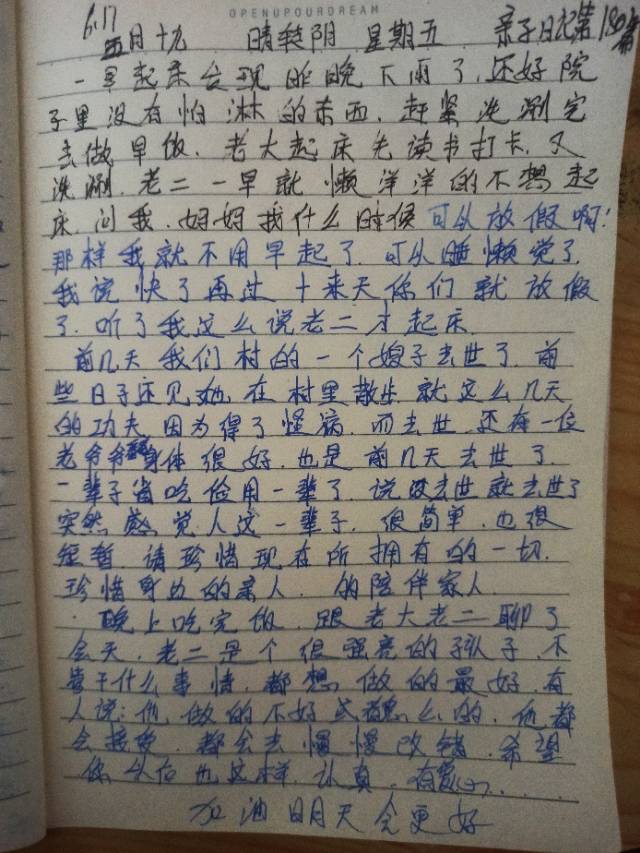 OPENUPOURDREAM
6.17
五月十九 晴转阴 星期五 亲子日记第180篇
一早起来发现昨晚下雨了,还好院
子里没有怕淋的东西,赶紧洗涮完
去做早饭.老大起床先读书打卡.又
洗涮.老二一早就懒洋洋的不想起
床.问我.妈妈我什么时候可以放假啊!
那样我就不用早起了.可以睡懒觉了.
我说快了再过十来天你们就放假
了.听了我这么说老二才起床.
前几天我们村的一个嫂子去世了.前
些日子还见她在村里散步就这么几天
的功夫因为得了怪病.而去世.还有一位
老爷爷身体很好.也是前几天去世了
一辈子省吃俭用一辈了.说没去世就去世了
突然感觉人这一辈子.很简单.也很
短暂.请珍惜现在所拥有的一切.
珍惜身边的亲人.的陪伴家人.
晚上吃完饭.跟老大老二聊了
会天.老二是个很强亮的孩子.不
管干什么事情.都想做的最好.有
人说:他做的不好或什么的.他都
会接受.都会去慢慢改错.希望
你以后也这样.认真.有爱心.
加油明天会更好